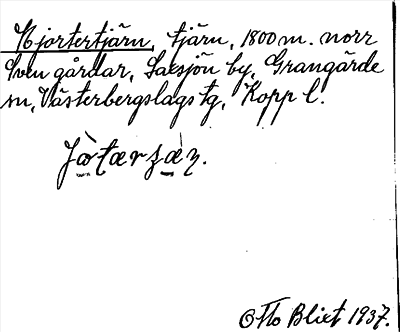 Hjortertjärn, tjärn, 1800 m. norr
Sven gårdar, Saxsjön by, Grangärde
sn, Västerbergslags tg, Kopp l.
Jòtærʒæ̀ɳ.
Otto Blixt 1937.